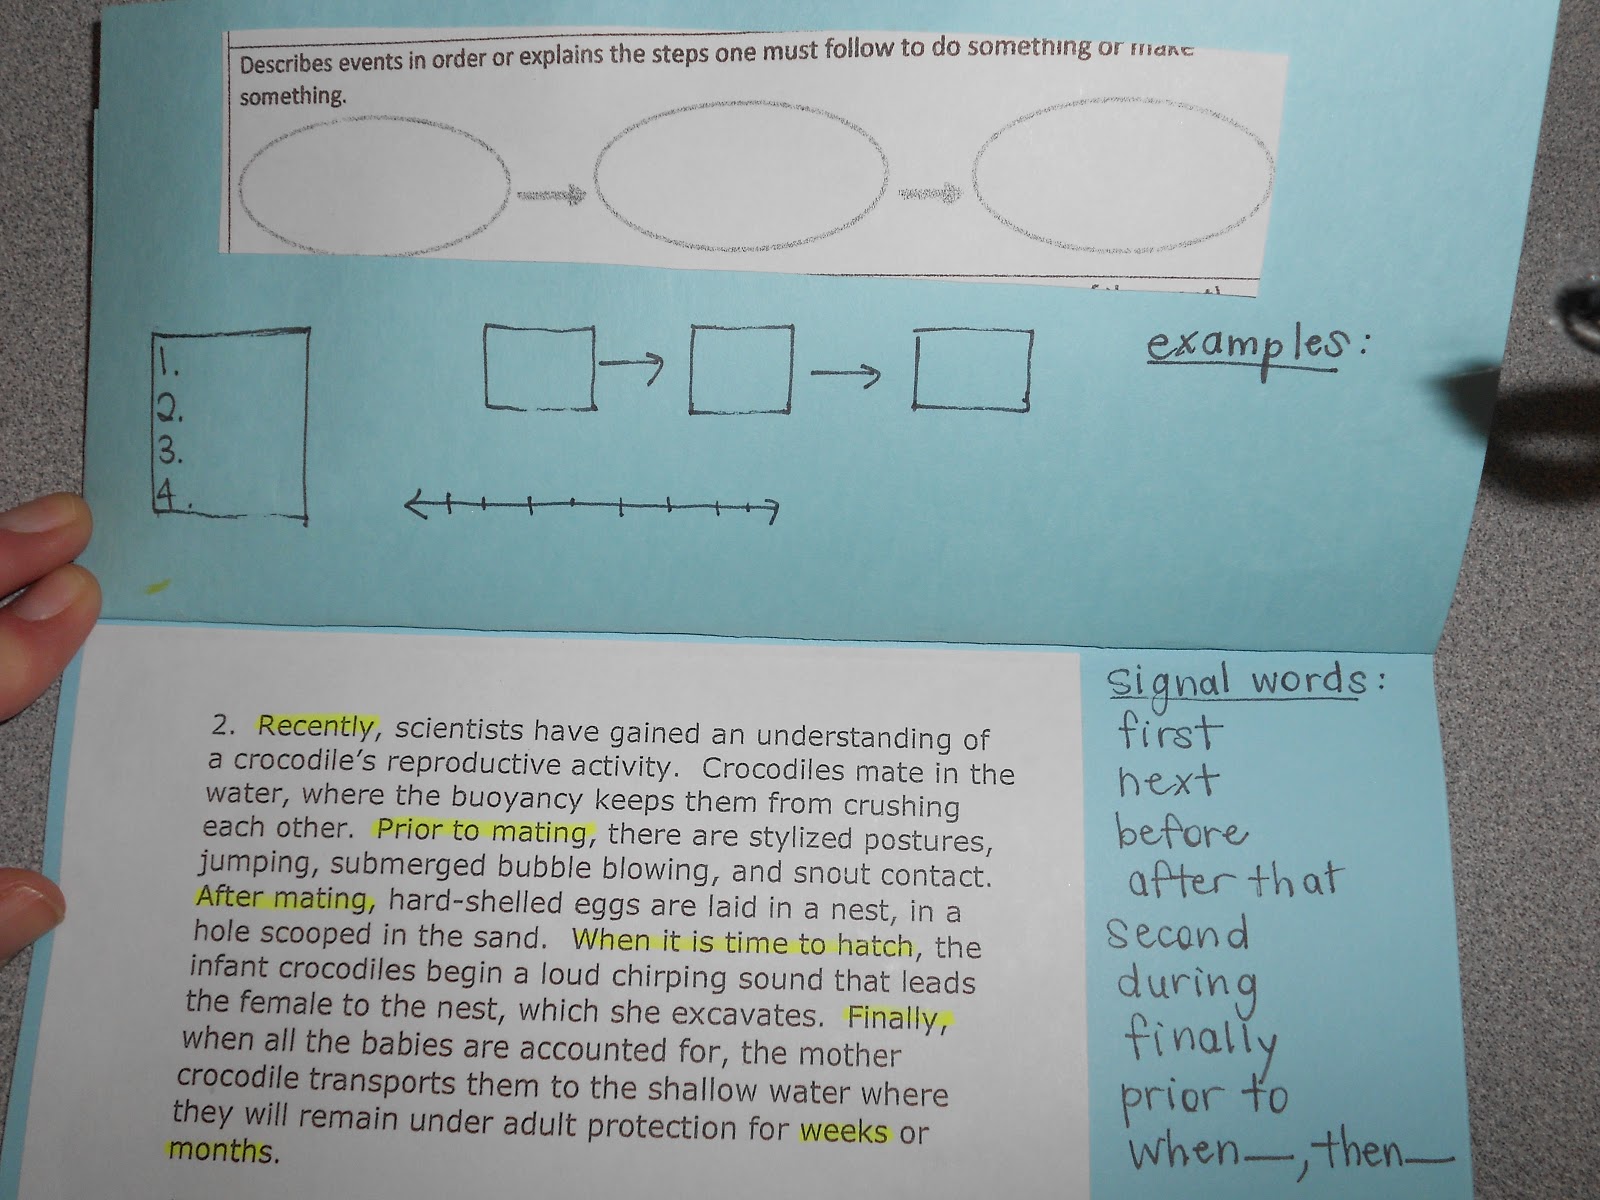 Describes events in order or explains the steps one must follow to do something or make
something.
examples:
1.
2.
3.
4.
2. Recently, scientists have gained an understanding of
a crocodile's reproductive activity. Crocodiles mate in the
water, where the buoyancy keeps them from crushing
each other. Prior to mating, there are stylized postures,
jumping, submerged bubble blowing, and snout contact.
After mating, hard-shelled eggs are laid in a nest, in a
hole scooped in the sand. When it is time to hatch, the
infant crocodiles begin a loud chirping sound that leads
the female to the nest, which she excavates. Finally,
when all the babies are accounted for, the mother
crocodile transports them to the shallow water where
they will remain under adult protection for weeks or
months.
signal words:
first
next
before
after that
second
during
finally
prior to
when__, then__